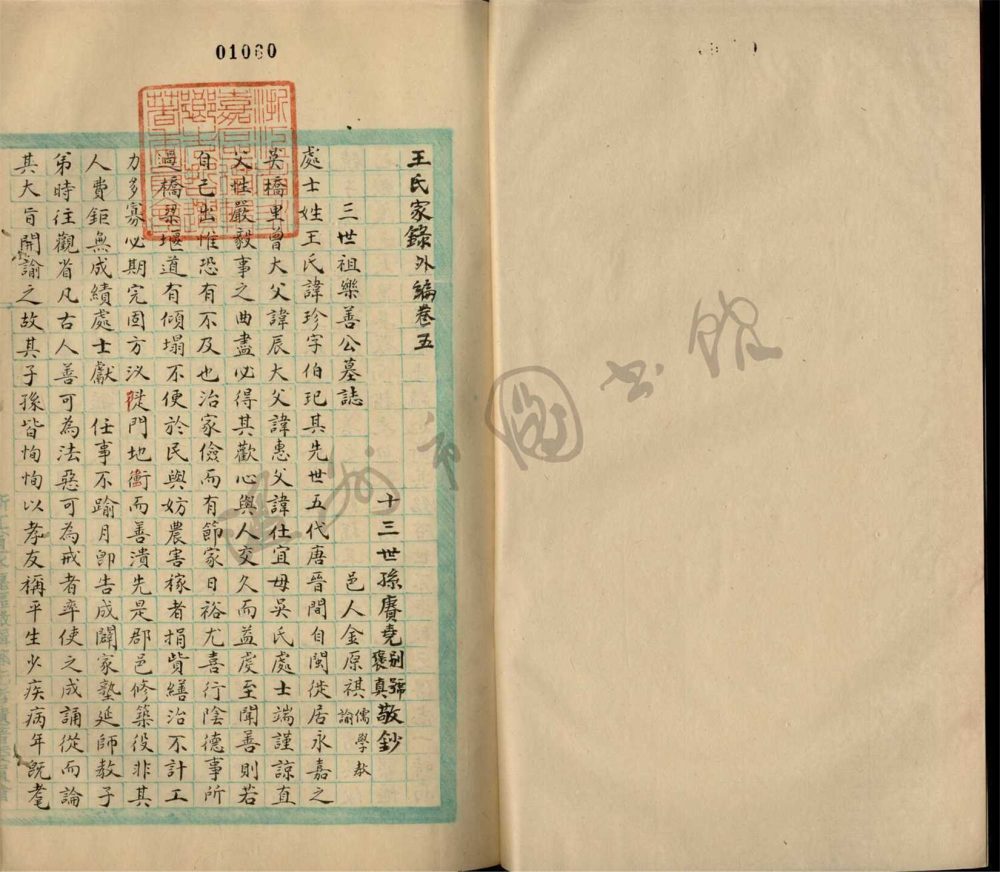 01060
王氏家錄外編卷五
十三世孫賡堯别號褒真敬鈔
三世祖樂善公墓誌
邑人金原祺儒學教諭
處士姓王氏諱珍字伯玘其先世五代唐晉間自閩徙居永嘉之
英橋里曾大父諱辰大父諱惠父諱仕宜母吳氏處士端謹諒直
父性嚴毅事之曲盡必得其歡心與人交久而益虔至聞善則若
自己出惟恐有不及也治家儉而有節家日裕尤喜行陰德事所
過橋梁堰道有傾塌不便於民與妨農害稼者捐貲繕治不計工
力多寡必期完固方沒從門地衝而善潰先是郡邑修築役非其
人費鉅無成績處士獻 任事不踰月即告成闢家塾延師教子
弟時往觀省凡古人善可為法惡可為戒者率使之成誦從而論
其大旨開諭之故其子孫皆恂恂以孝友稱平生少疾病年旣耄
溫州市圖書館